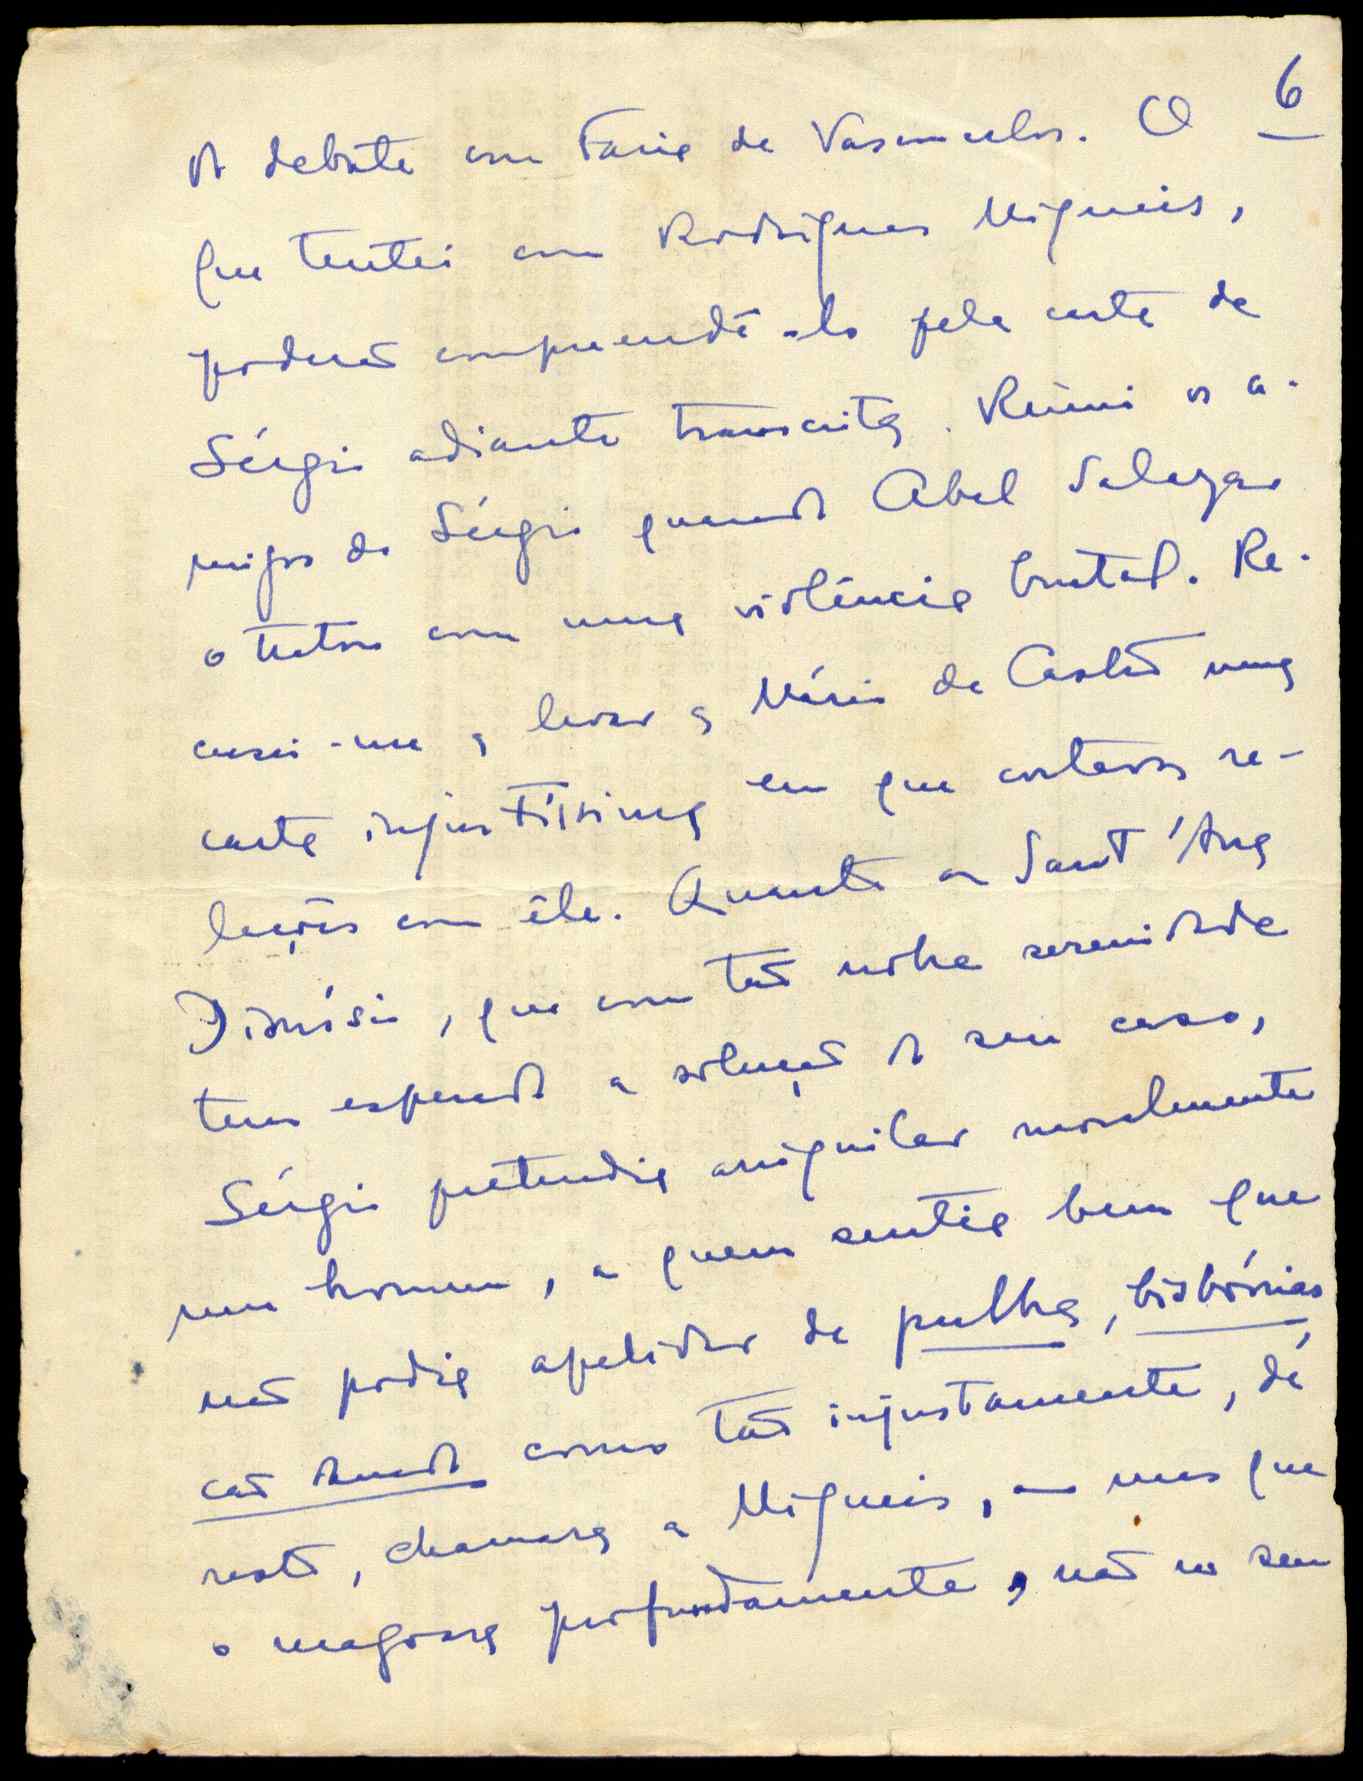 6
do debate com Faria de Vasconcelos. O
que tentei com Rodrigues Miguéis,
poderão compreendê-lo pela carta de
Sérgio adiante transcrita. Reùni os a-
migos de Sérgio quando Abel Salazar
o tratou com uma violência brutal. Re-
cusei-me a levar a Mário de Castro uma
carta injustíssima em que cortavas re-
lações com êle. Quanto a Sant'Ana
Dionísio, que com tão nobre serenidade
tem esperado a solução do seu caso,
Sérgio pretendia aniquilar moralmente
um homem, a quem sentia bem que
não podia apelidar de pulha, bisbórrias,
cão danado como tão injustamente, de
resto, chamara a Miguéis, — mas que
o magoara profundamente, não no seu